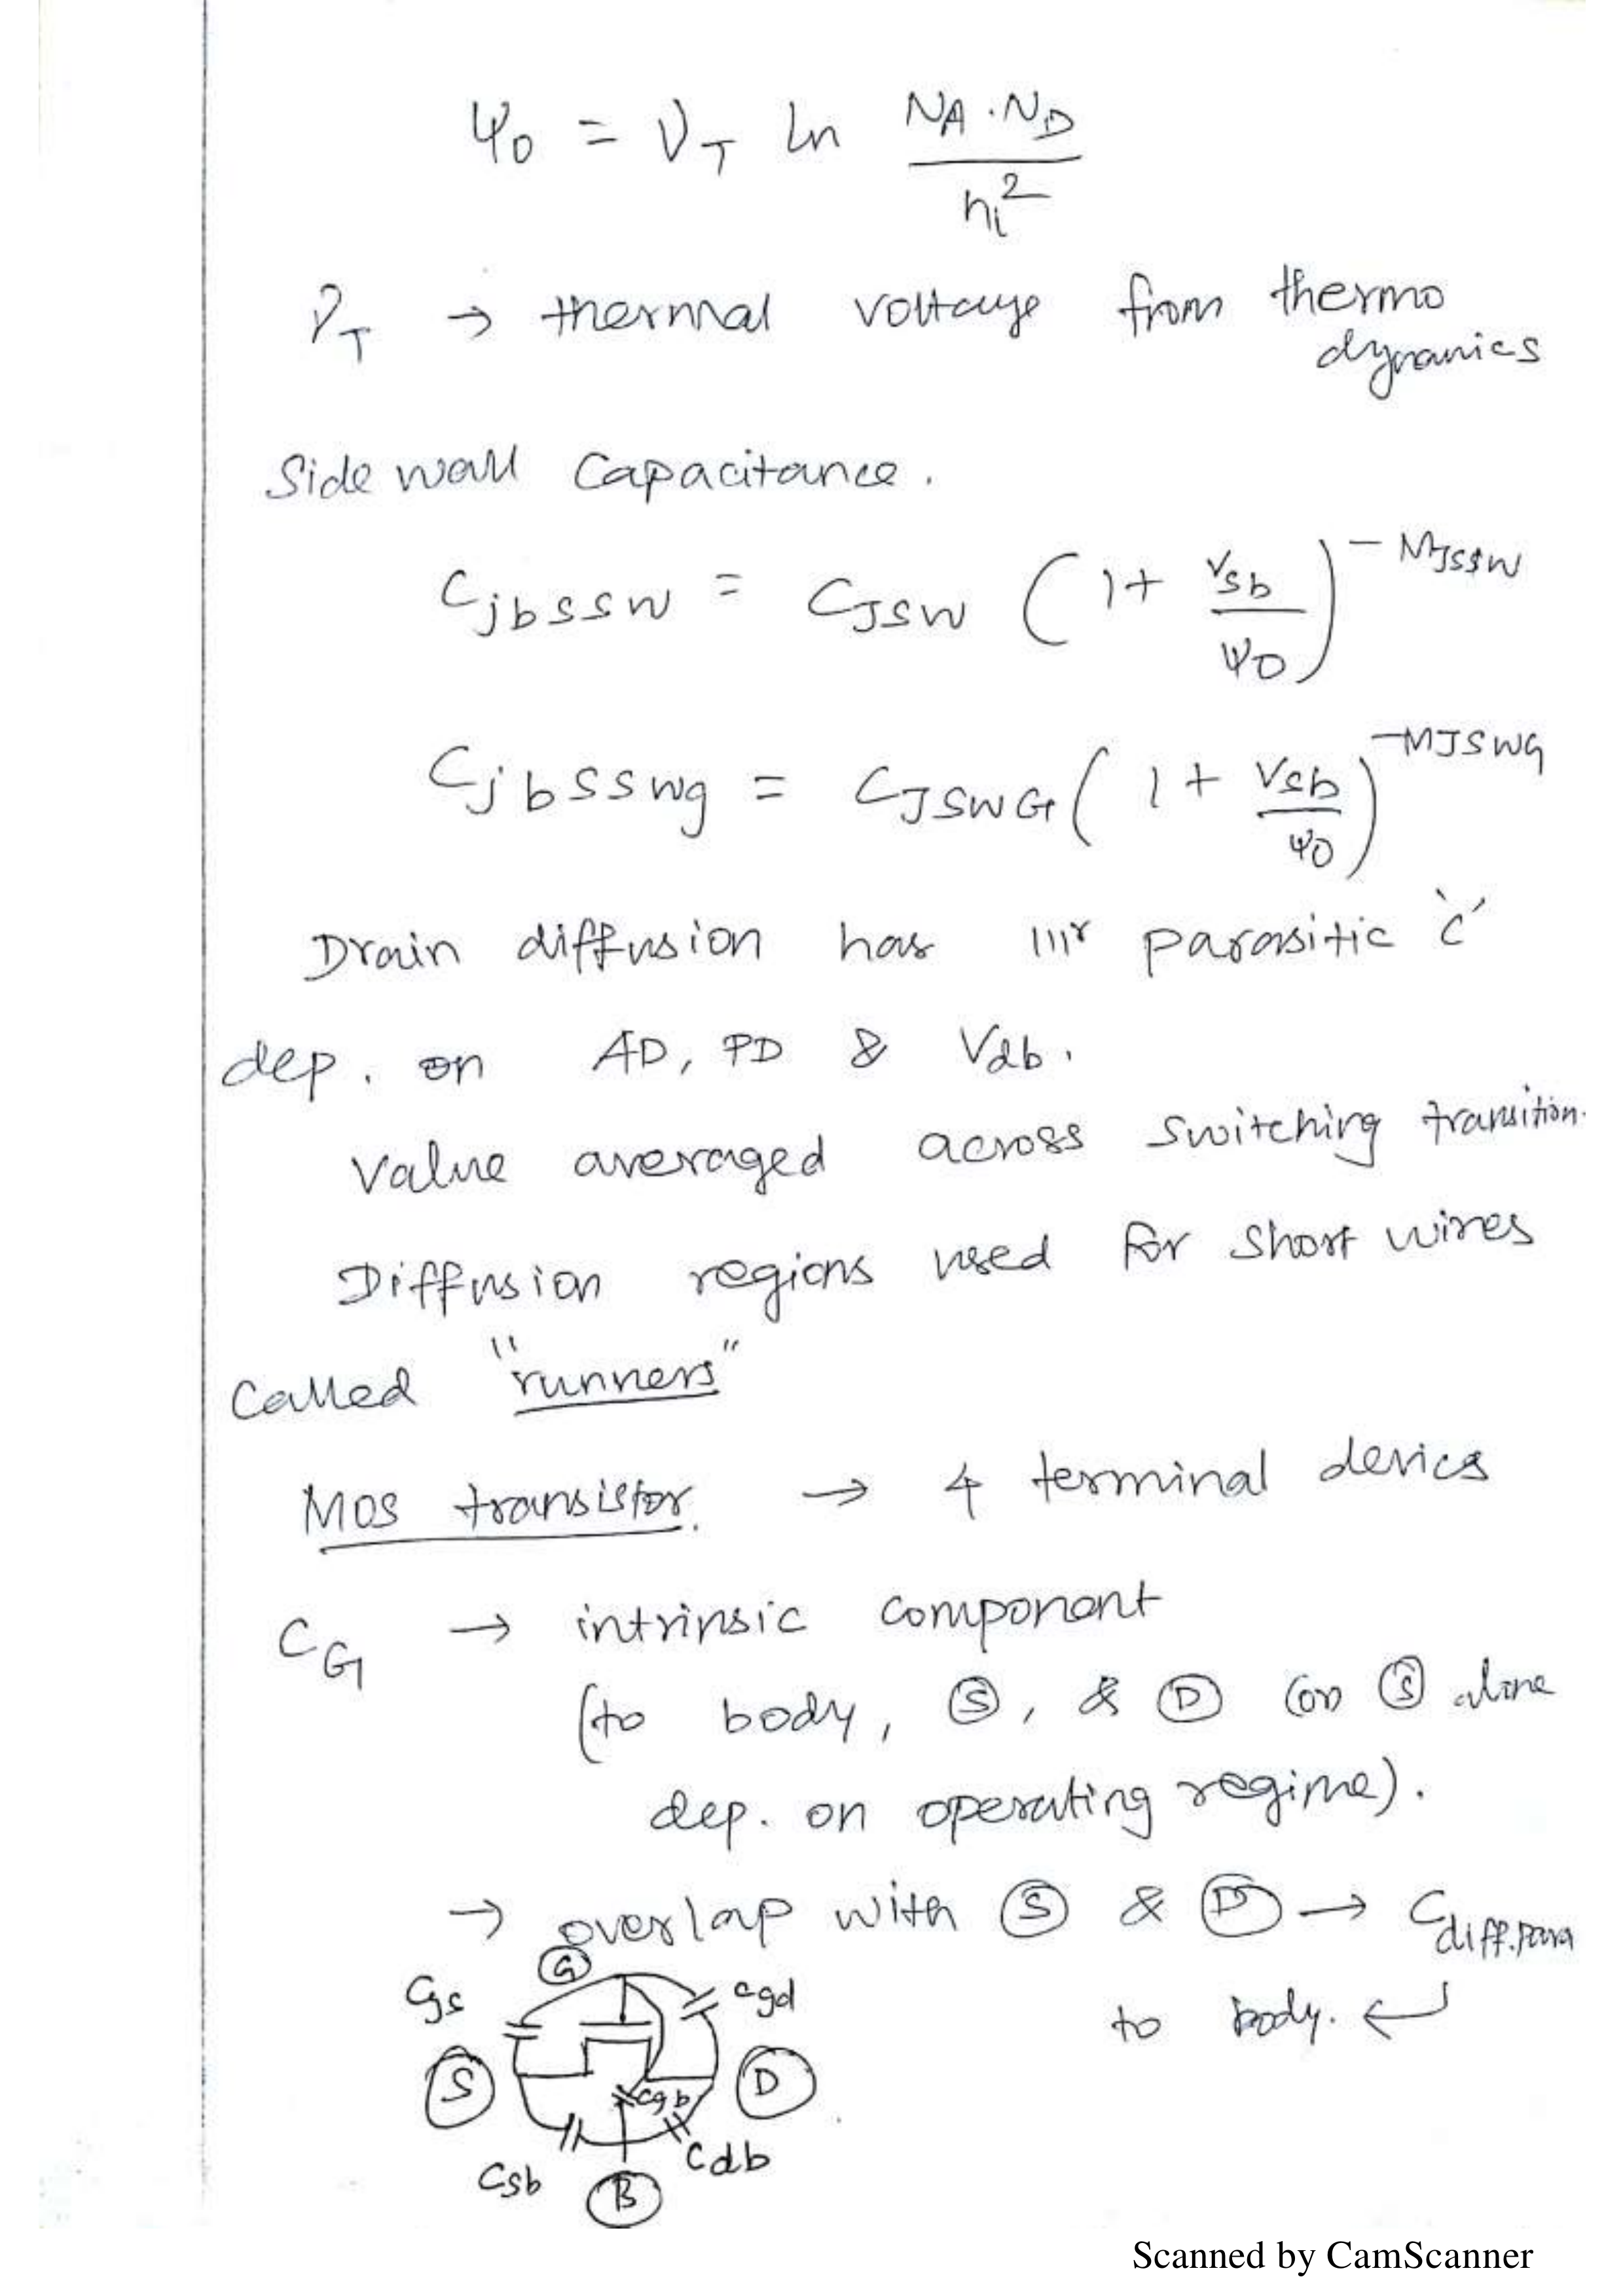 ψ₀ = ν_T ln (N_A · N_D) / n_i²
ν_T → thermal voltage from thermo
dynamics
Side wall Capacitance.
C_jbssw = C_JSW (1 + V_sb/ψ₀)^(-M_JSSW)
C_jbsswg = C_JSWG (1 + V_sb/ψ₀)^(-MJSWG)
Drain diffusion has |||r parasitic 'c'
dep. on AD, PD & V_db.
Value averaged across switching transition.
Diffusion regions used for short wires
Called "runners"
MOS transistor. → 4 terminal device
C_G → intrinsic component
(to body, Ⓢ, & Ⓓ (or) Ⓢ alone
dep. on operating regime).
→ overlap with Ⓢ & Ⓓ → C_diff.para
to body. ↵
Ⓖ
Cgs Cgd
Ⓢ Cgb Ⓓ
Csb Cdb
Ⓑ
Scanned by CamScanner